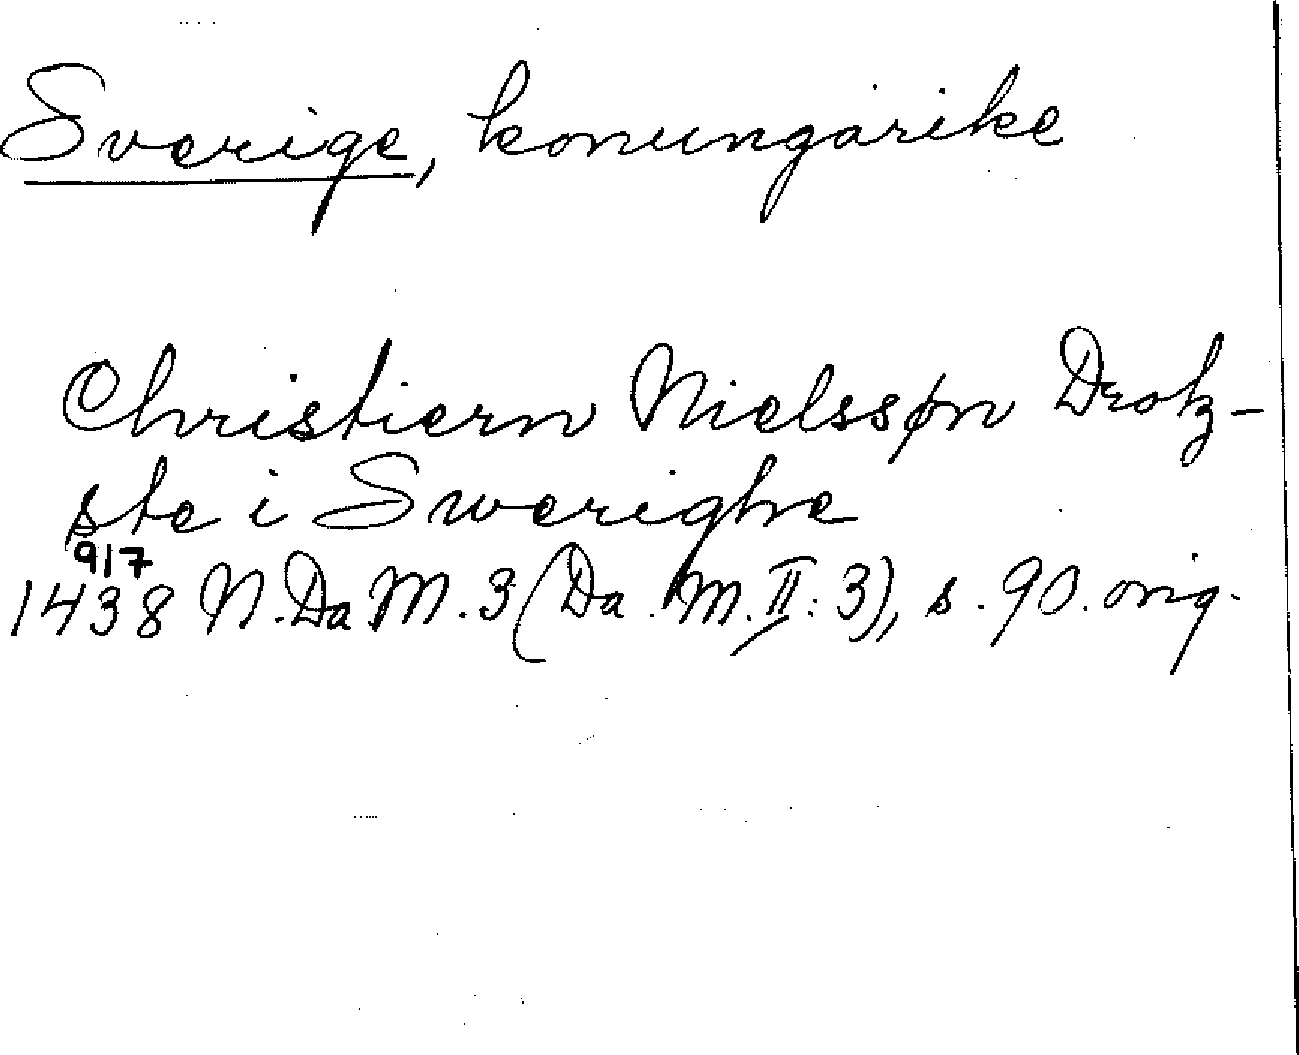 Sverige, konungarike
Christiern Nielssøn Drotz-
ste i Swerighe
917
1438 N. Da M. 3 (Da. M. II: 3), s. 90. orig.